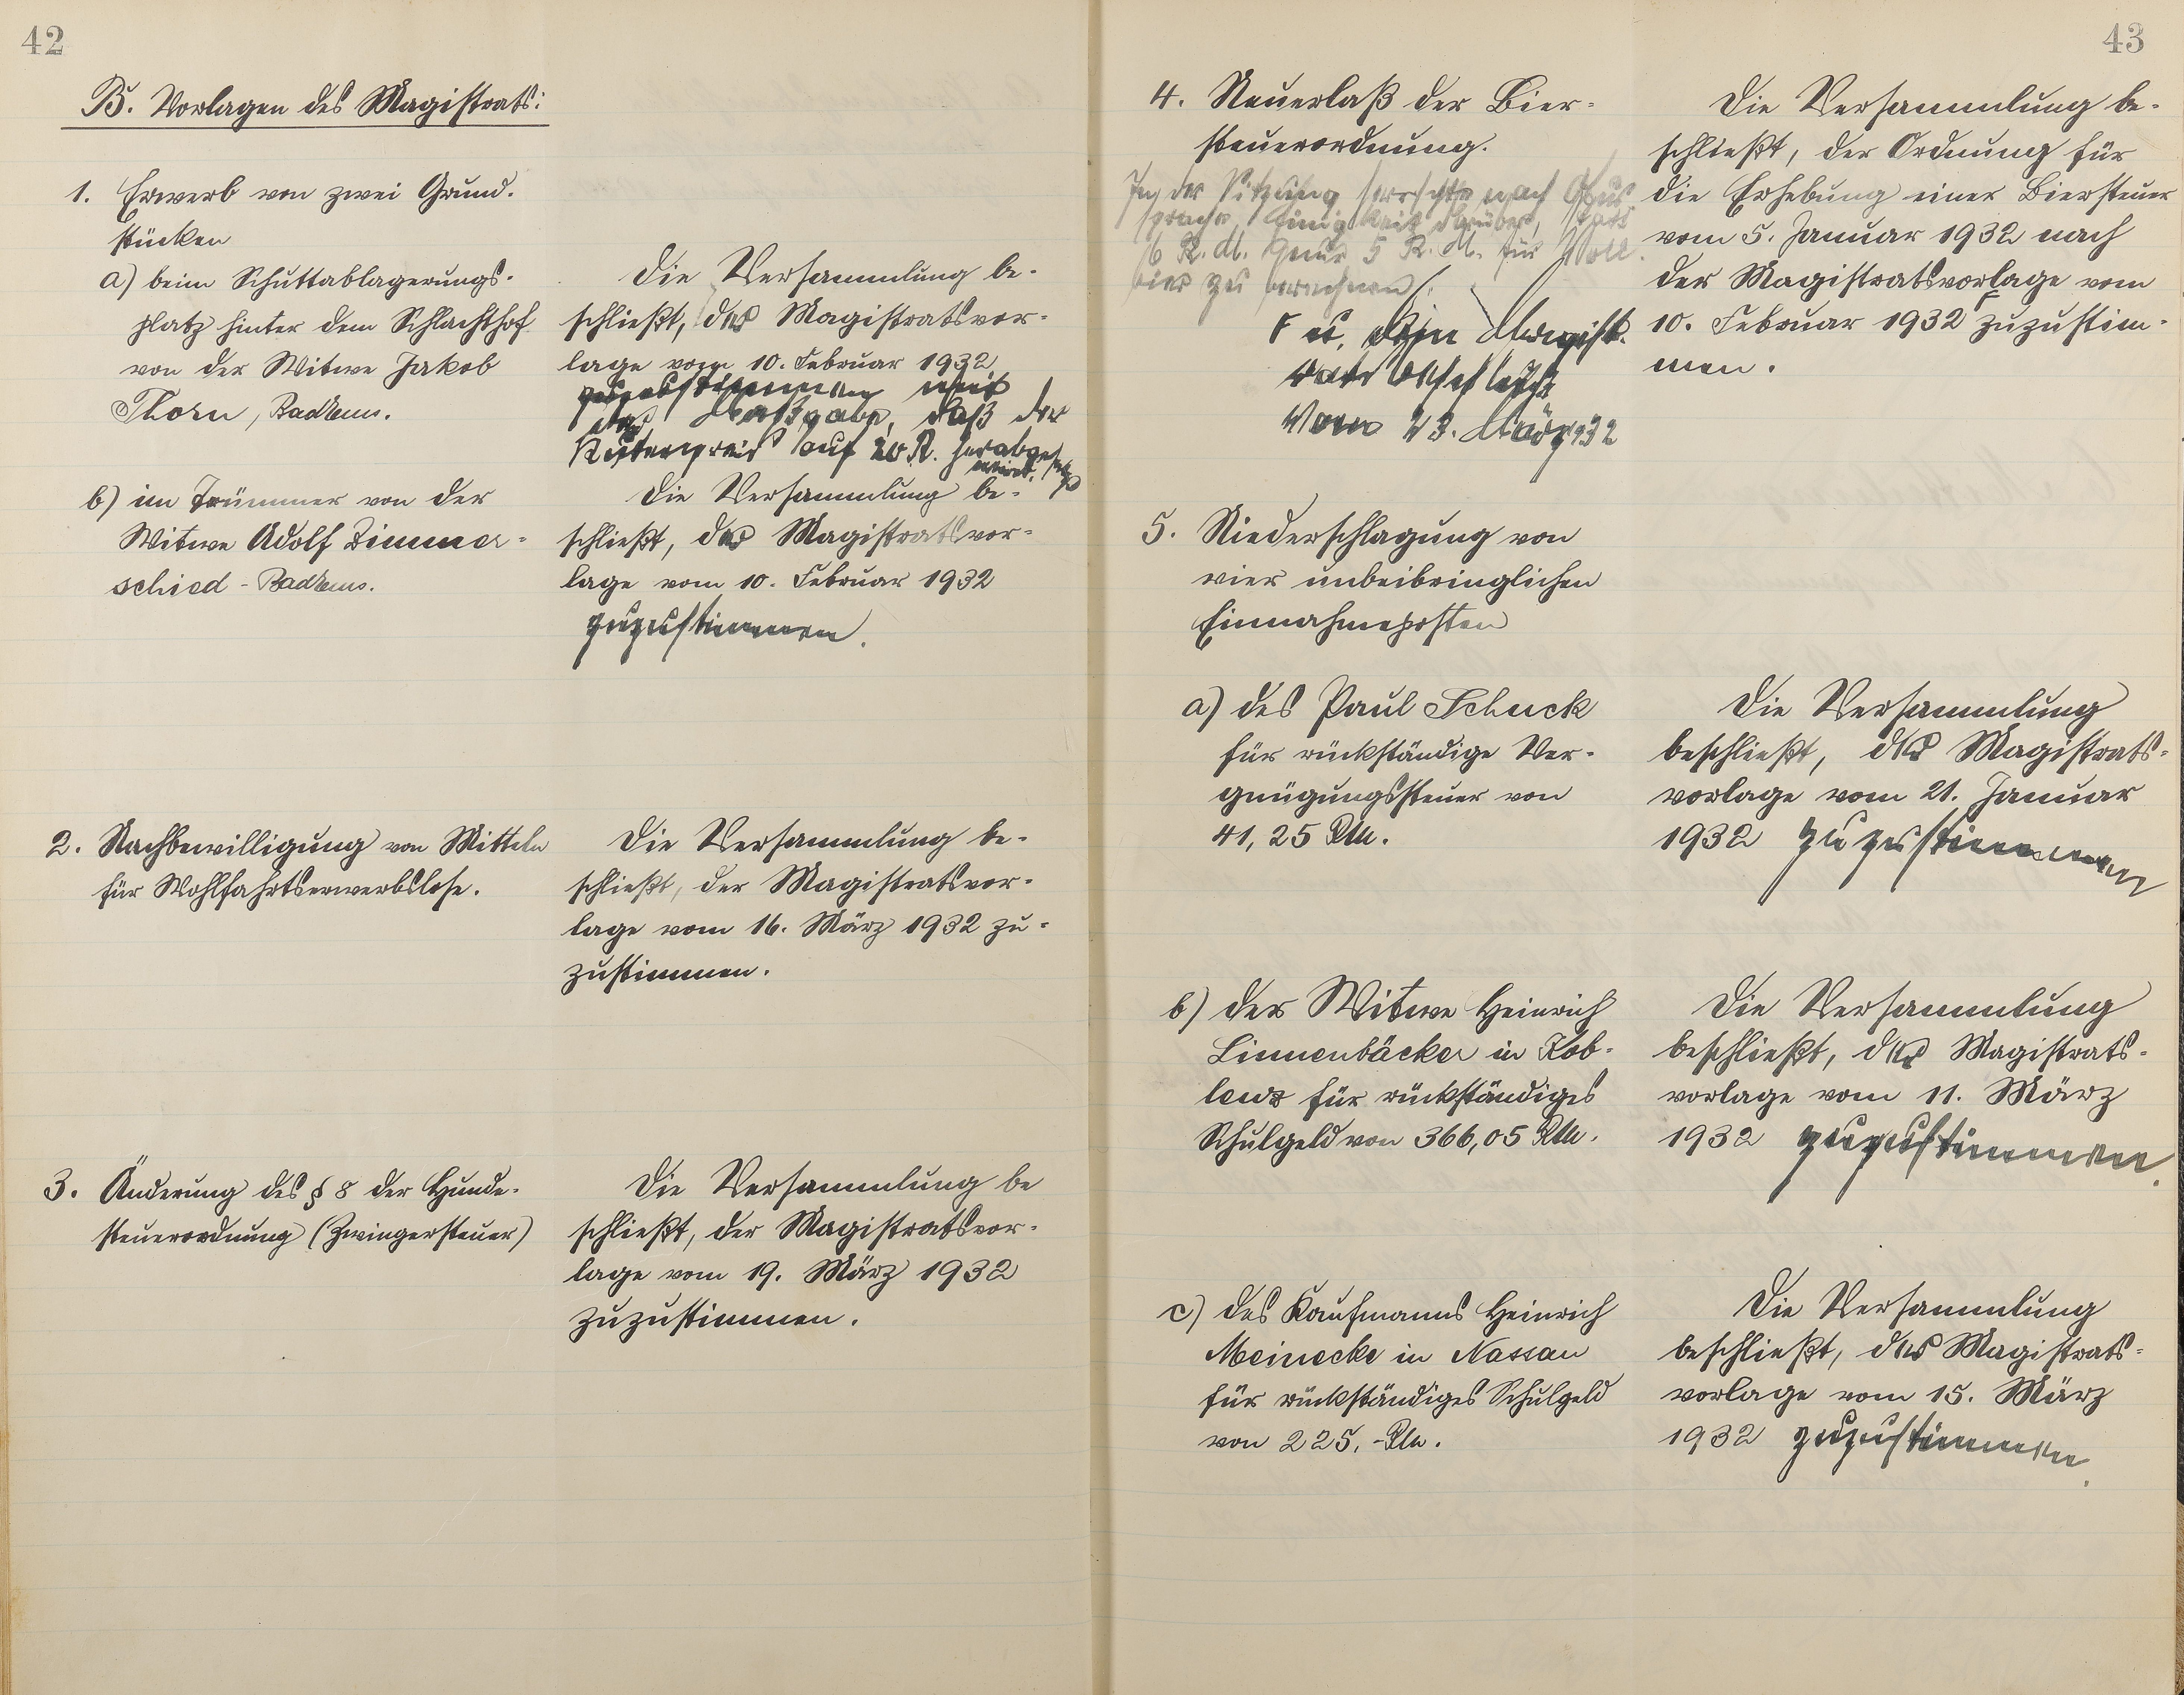 42
B. Vorlagen des Magistrats:
1. Erwerb von zwei Grund-
stücken
a) beim Schuttablagerungs-
platz hinter dem Schlachthof
von der Witwe Jakob
Thorn, Bad Ems.
Die Versammlung be-
schließt, der Magistratsvor-
lage vom 10. Februar 1932
zuzustimmen mit
der Maßgabe, daß der
Rutenpreis auf 20 R. herabgesetzt
wird.
b) im Trümmer von der
Witwe Adolf Zimmer-
schied - Bad Ems.
Die Versammlung be-
schließt, der Magistratsvor-
lage vom 10. Februar 1932
zuzustimmen.
2. Nachbewilligung von Mitteln
für Wohlfahrtserwerbslose.
Die Versammlung be-
schließt, der Magistratsvor-
lage vom 16. März 1932 zu-
zustimmen.
3. Änderung des § 8 der Hunde-
steuerordnung (Zwingersteuer)
Die Versammlung be
schließt, der Magistratsvor-
lage vom 19. März 1932
zuzustimmen.
43
4. Neuerlaß der Bier-
steuerordnung.
In der Sitzung herrschte nach Aus-
sprache Einigkeit darüber, statt
6 R.M. nur 5 R.M. für Voll-
bier zu berechnen.
F u. dem Magist-
ratsbeschluß
vom 23. März 32
Die Versammlung be-
schließt, der Ordnung für
die Erhebung einer Biersteuer
vom 5. Januar 1932 nach
der Magistratsvorlage vom
10. Februar 1932 F zuzustim-
men.
5. Niederschlagung von
vier unbeibringlichen
Einnahmeposten
a) des Paul Schuck
für rückständige Ver-
gnügungssteuer von
41,25 RM.
Die Versammlung
beschließt, der Magistrats-
vorlage vom 21. Januar
1932 zuzustimmen
b) der Witwe Heinrich
Linnenbäcker in Kob-
lenz für rückständiges
Schulgeld von 366,05 RM.
Die Versammlung
beschließt, der Magistrats-
vorlage vom 11. März
1932 zuzustimmen.
c) des Kaufmanns Heinrich
Meinecke in Nassau
für rückständiges Schulgeld
von 225,- RM.
Die Versammlung
beschließt, der Magistrats-
vorlage vom 15. März
1932 zuzustimmen.